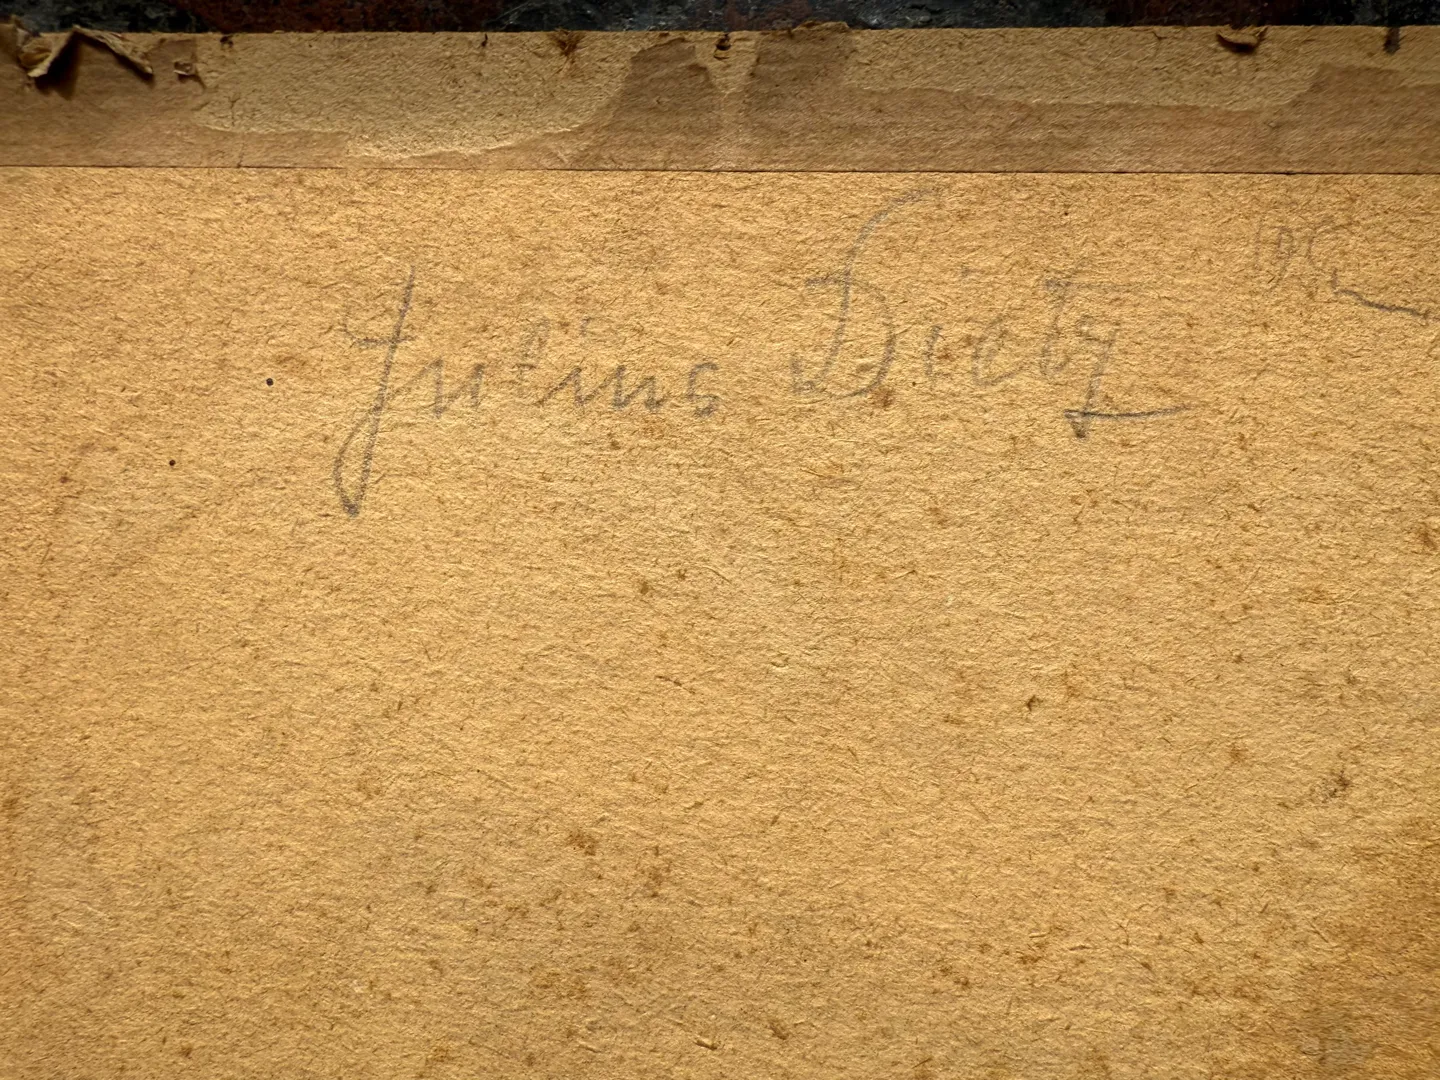 Julius Dietz